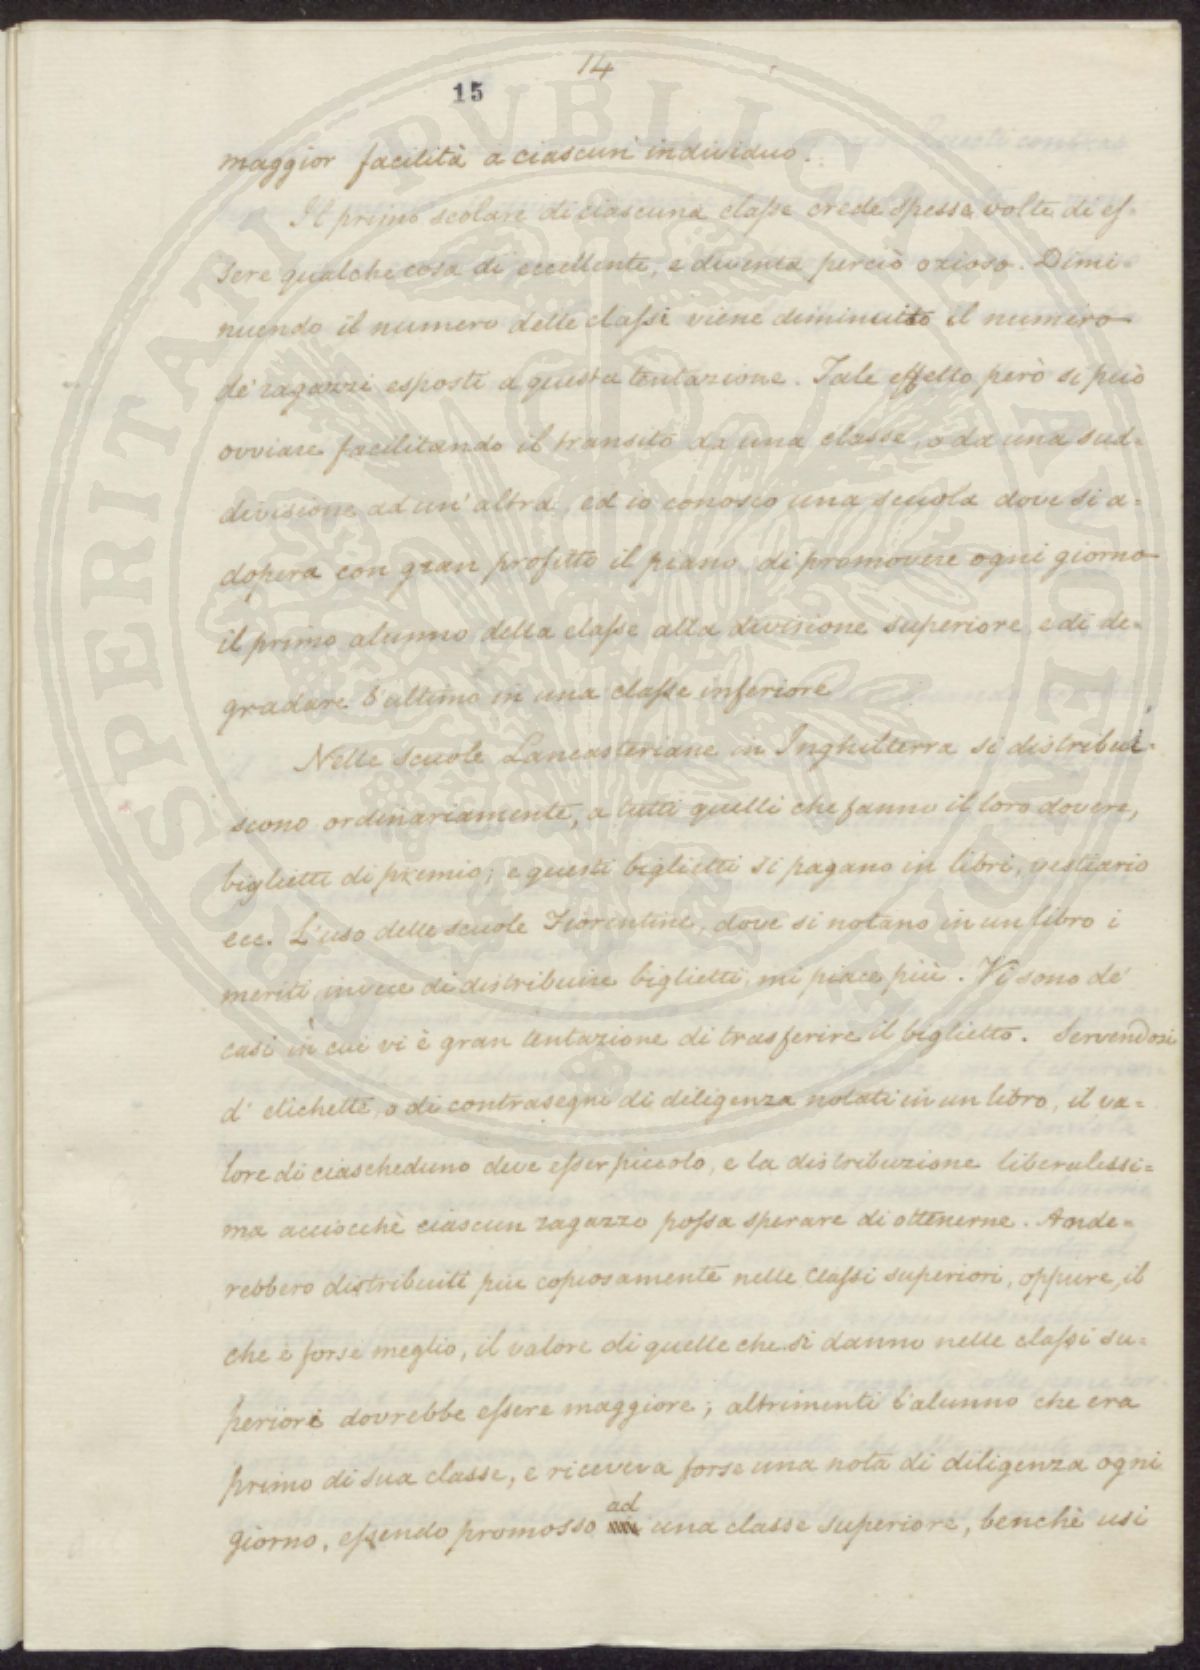 14
15
maggior facilità a ciascun individuo.
Il primo scolare di ciascuna classe crede spesse volte di es-
sere qualche cosa di eccellente, e diventa perciò ozioso. Dimi-
nuendo il numero delle classi viene diminuito il numero
de' ragazzi esposti a questa tentazione. Tale effetto però si può
ovviare facilitando il transito da una classe, o da una sud-
divisione ad un' altra, ed io conosco una scuola dove si a-
dopera con gran profitto il piano di promovere ogni giorno
il primo alunno della classe alla divisione superiore, e di de-
gradare l'ultimo in una classe inferiore
Nelle scuole Lancasteriane in Inghilterra si distribui-
scono ordinariamente, a tutti quelli che fanno il loro dovere,
biglietti di premio; e questi biglietti si pagano in libri, vestiario
ecc. L'uso delle scuole Fiorentine, dove si notano in un libro i
meriti, invece di distribuire biglietti, mi piace più. Vi sono de'
casi in cui vi è gran tentazione di trasferire il biglietto. Servendosi
d' etichette, o di contrasegni di diligenza notati in un libro, il va=
lore di ciascheduno deve esser piccolo, e la distribuzione liberalessi=
ma acciocchè ciascun ragazzo possa sperare di ottenerne. Ande=
rebbero distribuiti più copiosamente nelle classi superiori, oppure, il
che è forse meglio, il valore di quelle che si danno nelle classi su=
periori dovrebbe essere maggiore; altrimenti l'alunno che era
primo di sua classe, e riceveva forse una nota di diligenza ogni
ad
giorno, essendo promosso una classe superiore, benchè usi
PROSPERITATI PUBLICAE AUGENDAE